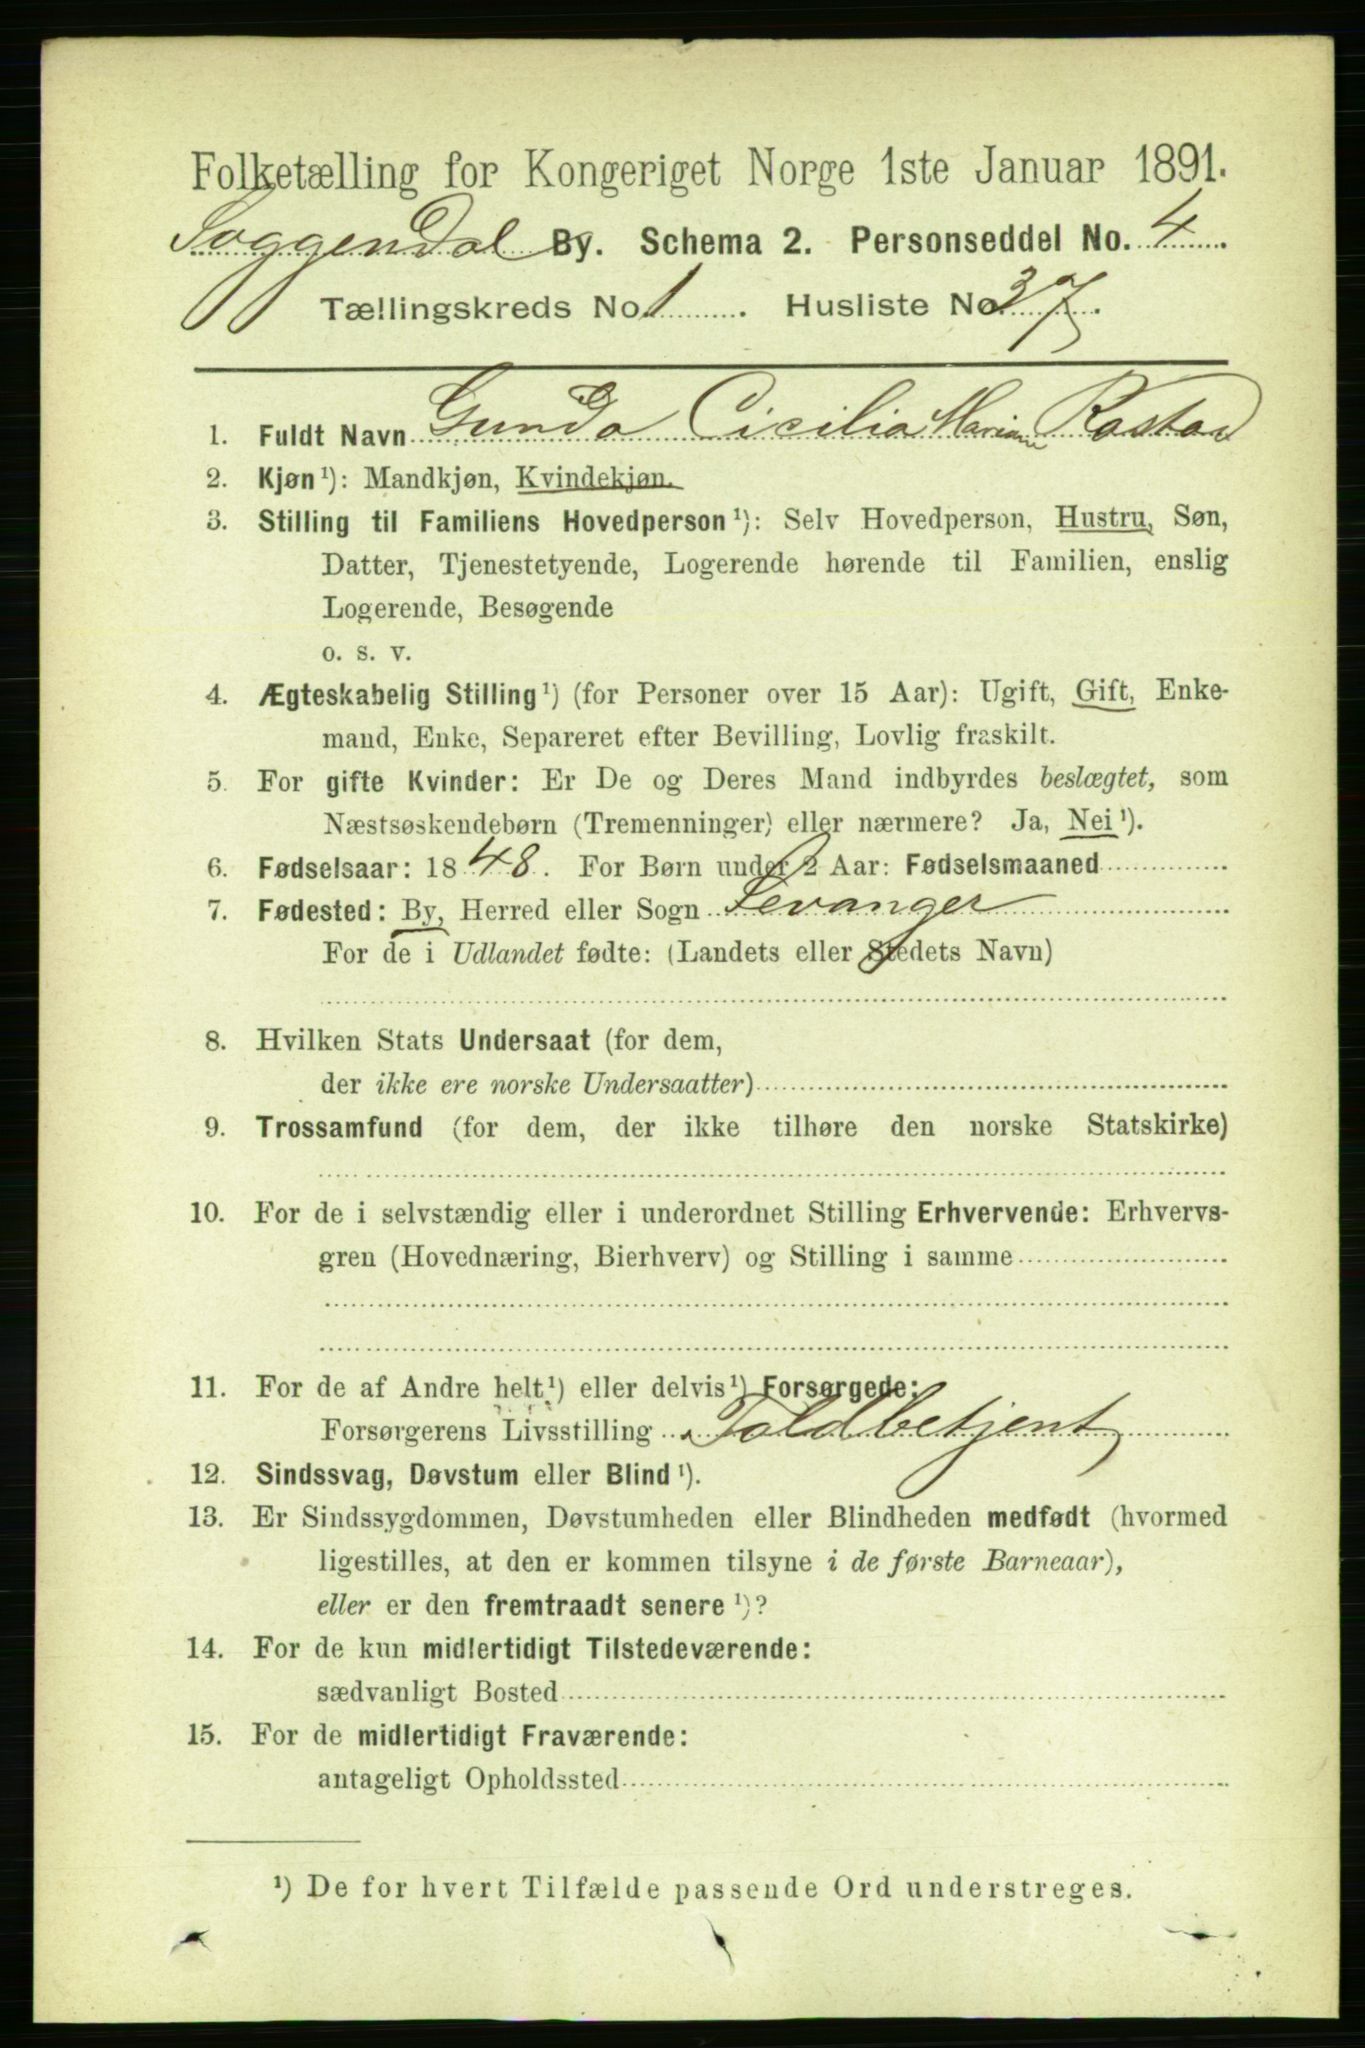 Folketælling for Kongeriget Norge 1ste Januar 1891.
Soggendal By. Schema 2. Personseddel No. 4
Tællingskreds No. 1. Husliste No. 37.
1. Fuldt Navn Gunda Cicilia Mariane Rostad
2. Kjøn ¹): Mandkjøn, Kvindekjøn.
3. Stilling til Familiens Hovedperson ¹): Selv Hovedperson, Hustru, Søn,
Datter, Tjenestetyende, Logerende hørende til Familien, enslig
Logerende, Besøgende
o. s. v.
4. Ægteskabelig Stilling ¹) (for Personer over 15 Aar): Ugift, Gift, Enke-
mand, Enke, Separeret efter Bevilling, Lovlig fraskilt.
5. For gifte Kvinder: Er De og Deres Mand indbyrdes beslægtet, som
Næstsøskendebørn (Tremenninger) eller nærmere? Ja, Nei ¹).
6. Fødselsaar: 1848. For Børn under 2 Aar: Fødselsmaaned
7. Fødested: By, Herred eller Sogn Levanger
For de i Udlandet fødte: (Landets eller Stedets Navn)
8. Hvilken Stats Undersaat (for dem,
der ikke ere norske Undersaatter)
9. Trossamfund (for dem, der ikke tilhøre den norske Statskirke)
10. For de i selvstændig eller i underordnet Stilling Erhvervende: Erhvervs-
gren (Hovednæring, Bierhverv) og Stilling i samme
11. For de af Andre helt ¹) eller delvis ¹) Forsørgede:
Forsørgerens Livsstilling Toldbetjent
12. Sindssvag, Døvstum eller Blind ¹).
13. Er Sindssygdommen, Døvstumheden eller Blindheden medfødt (hvormed
ligestilles, at den er kommen tilsyne i de første Barneaar),
eller er den fremtraadt senere ¹)?
14. For de kun midlertidigt Tilstedeværende:
sædvanligt Bosted
15. For de midlertidigt Fraværende:
antageligt Opholdssted
¹) De for hvert Tilfælde passende Ord understreges.